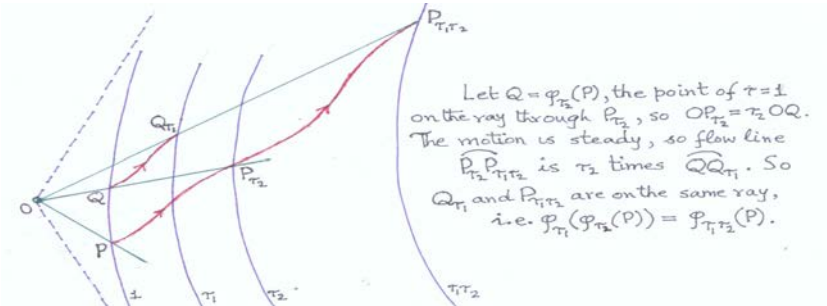 P_{τ₁τ₂}
Q_{τ₁}
P_{τ₂}
O
Q
P
1
τ₁
τ₂
τ₁τ₂
Let Q = φ_{τ₂}(P), the point of τ=1
on the ray through P_{τ₂}, so OP_{τ₂} = τ₂ OQ.
The motion is steady, so flow line
P_{τ₂}P_{τ₁τ₂} is τ₂ times QQ_{τ₁}. So
Q_{τ₁} and P_{τ₁τ₂} are on the same ray,
i.e. φ_{τ₁}(φ_{τ₂}(P)) = φ_{τ₁τ₂}(P).